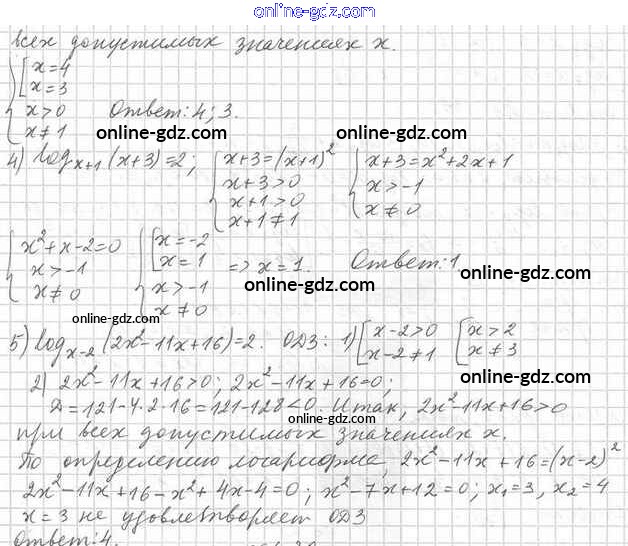 online-gdz.com
всех допустимых значениях x.
x=4
x=3
x>0
x≠1
Ответ: 4; 3.
online-gdz.com online-gdz.com
4) log_{x+1}(x+3)=2; { x+3=(x+1)² { x+3=x²+2x+1
x+3>0 x>-1
x+1>0 x≠0
x+1≠1
{ x²+x-2=0 { [ x=-2
x>-1 x=1 => x=1. Ответ: 1.
x≠0 x>-1
x≠0
online-gdz.com
online-gdz.com
online-gdz.com
5) log_{x-2}(2x²-11x+16)=2. ОДЗ: 1) [ x-2>0 [ x>2
x-2≠1 x≠3
2) 2x²-11x+16>0; 2x²-11x+16=0;
Д=121-4·2·16=121-128<0. Итак, 2x²-11x+16>0
online-gdz.com
при всех допустимых значениях x.
По определению логарифма, 2x²-11x+16=(x-2)²
2x²-11x+16-x²+4x-4=0; x²-7x+12=0; x₁=3, x₂=4
x=3 не удовлетворяет ОДЗ
online-gdz.com
Ответ: 4.